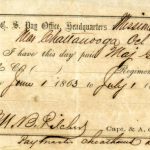 C. S. Pay Office, Headquarters Missionary
Near Chattanooga, Oct
I have this day paid Maj
& Co Regiment
June 1 1863 to July 1
W. B.
Capt. & A.
Paymaster Cheatham's